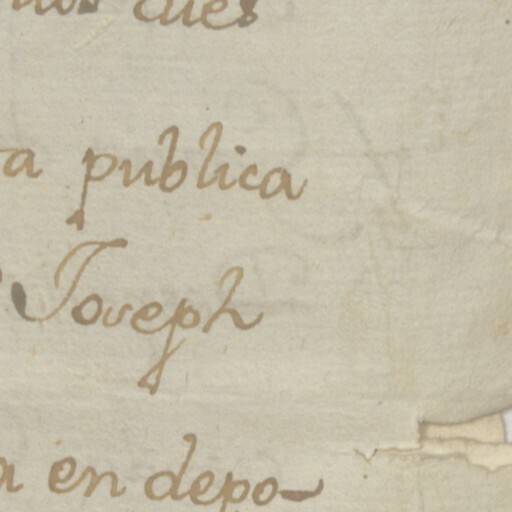 a publica
Joseph
a en depo-